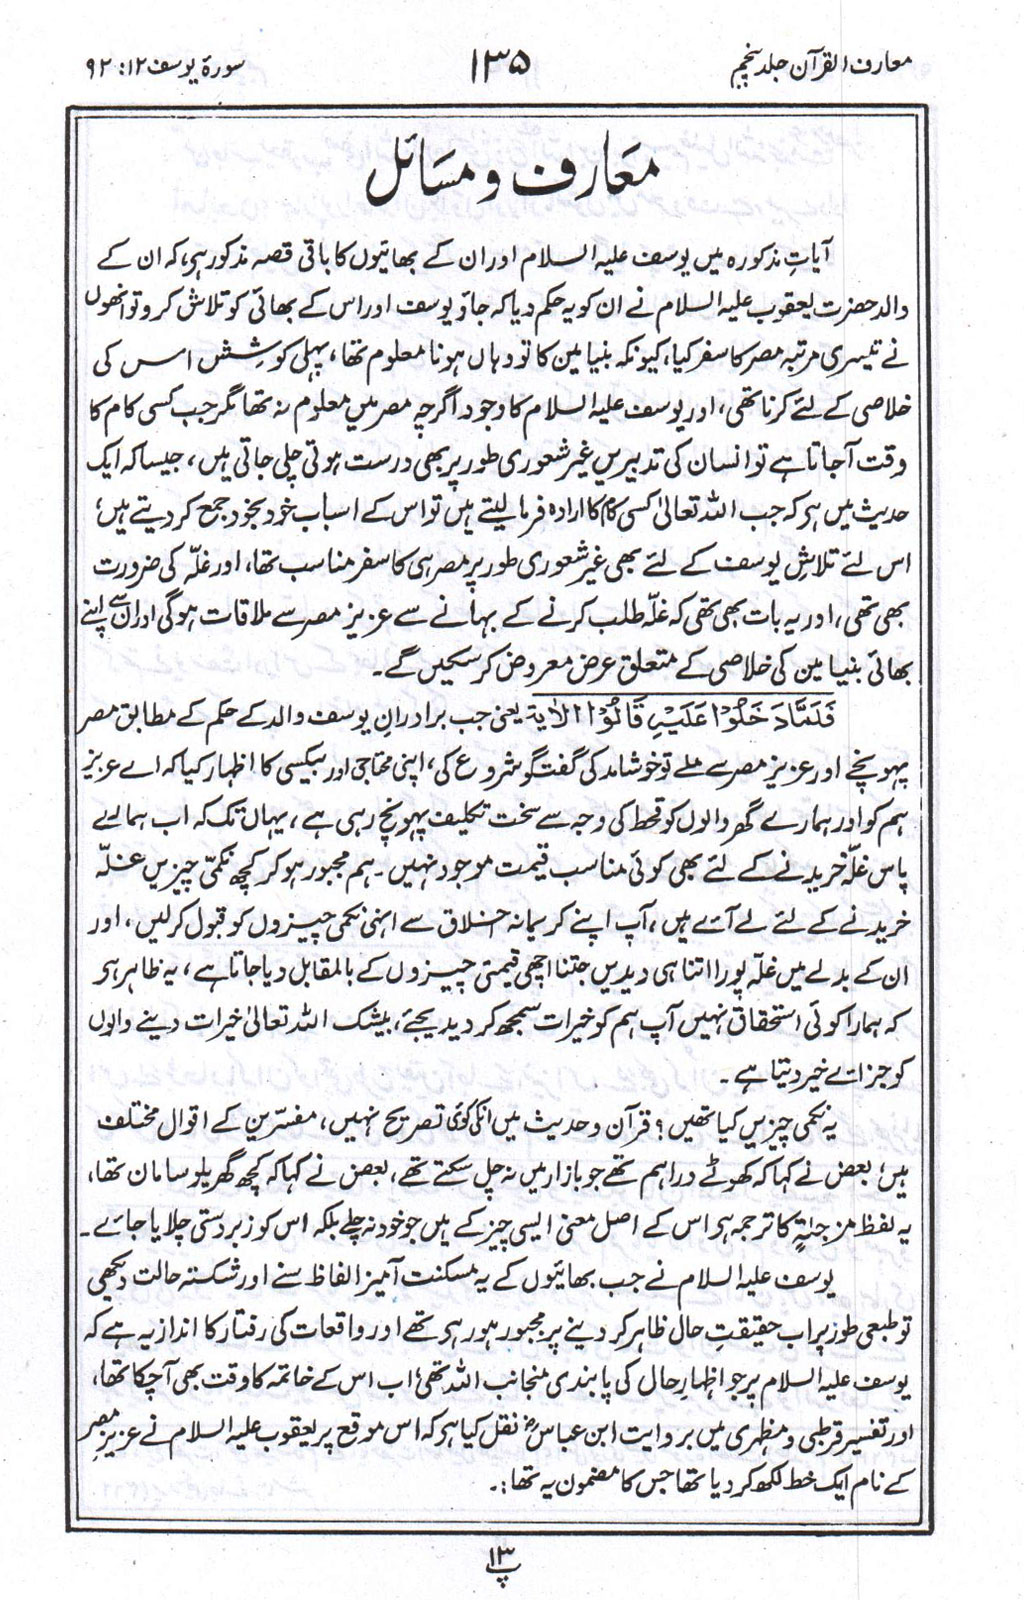 معارف القرآن جلد پنجم
۱۳۵
سورۃ یوسف ۱۲: ۹۲
معارف و مسائل
آیاتِ مذکورہ میں یوسف علیہ السلام اور ان کے بھائیوں کا باقی قصہ مذکور ہی، کہ ان کے
والد حضرت یعقوب علیہ السلام نے ان کو یہ حکم دیا کہ جاؤ یوسف اور اس کے بھائی کو تلاش کرو تو انھوں
نے تیسری مرتبہ مصر کا سفر کیا، کیونکہ بنیامین کا تو وہاں ہونا معلوم تھا، پہلی کوشش اس کی
خلاصی کے لئے کرنا تھی، اور یوسف علیہ السلام کا وجود اگرچہ مصر میں معلوم نہ تھا مگر جب کسی کام کا
وقت آجاتا ہے تو انسان کی تدبیریں غیر شعوری طور پر بھی درست ہوتی چلی جاتی ہیں، جیسا کہ ایک
حدیث میں ہی کہ جب اللہ تعالیٰ کسی کام کا ارادہ فرما لیتے ہیں تو اس کے اسباب خود بخود جمع کر دیتے ہیں،
اس لئے تلاشِ یوسف کے لئے بھی غیر شعوری طور پر مصر ہی کا سفر مناسب تھا، اور غلّہ کی ضرورت
بھی تھی، اور یہ بات بھی تھی کہ غلّہ طلب کرنے کے بہانے سے عزیز مصر سے ملاقات ہوگی اور ان سے اپنے
بھائی بنیامین کی خلاصی کے متعلق عرض معروض کر سکیں گے۔
فَلَمَّا دَخَلُوْا عَلَیْہِ قَالُوْا الآیۃ یعنی جب برادرانِ یوسف والد کے حکم کے مطابق مصر
پہونچے اور عزیز مصر سے ملے تو خوشامد کی گفتگو شروع کی، اپنی محتاجی اور بیکسی کا اظہار کیا کہ اے عزیز
ہم کو اور ہمارے گھر والوں کو قحط کی وجہ سے سخت تکلیف پہونچ رہی ہے، یہاں تک کہ اب ہمارے
پاس غلّہ خریدنے کے لئے بھی کوئی مناسب قیمت موجود نہیں۔ ہم مجبور ہو کر کچھ نکمّی چیزیں غلّہ
خریدنے کے لئے لے آئے ہیں، آپ اپنے کریمانہ اخلاق سے انہی نکمی چیزوں کو قبول کر لیں، اور
ان کے بدلے میں غلّہ پورا اتنا ہی دیدیں جتنا اچھی قیمتی چیزوں کے بالمقابل دیا جاتا ہے، یہ ظاہر ہی
کہ ہمارا کوئی استحقاق نہیں آپ ہم کو خیرات سمجھ کر دیدیجئے، بیشک اللہ تعالیٰ خیرات دینے والوں
کو جزائے خیر دیتا ہے۔
یہ نکمی چیزیں کیا تھیں؟ قرآن و حدیث میں انکی کوئی تصریح نہیں، مفسّرین کے اقوال مختلف
ہیں، بعض نے کہا کہ کھوٹے دراہم تھے جو بازار میں نہ چل سکتے تھے، بعض نے کہا کہ کچھ گھریلو سامان تھا،
یہ لفظ مزجٰیۃٍ کا ترجمہ ہی اس کے اصل معنی ایسی چیز کے ہیں جو خود نہ چلے بلکہ اس کو زبردستی چلایا جائے۔
یوسف علیہ السلام نے جب بھائیوں کے یہ مسکنت آمیز الفاظ سنے اور شکستہ حالت دیکھی
تو طبعی طور پر اب حقیقتِ حال ظاہر کر دینے پر مجبور ہو رہی تھے اور واقعات کی رفتار کا انداز یہ ہے کہ
یوسف علیہ السلام پر جو اظہارِ حال کی پابندی منجانب اللہ تھی، اب اس کے خاتمہ کا وقت بھی آچکا تھا،
اور تفسیر قرطبی و مظہری میں بروایت ابن عباسؓ نقل کیا ہی کہ اس موقع پر یعقوب علیہ السلام نے عزیز مصر
کے نام ایک خط لکھ کر دیا تھا جس کا مضمون یہ تھا:۔
پ ۱۳